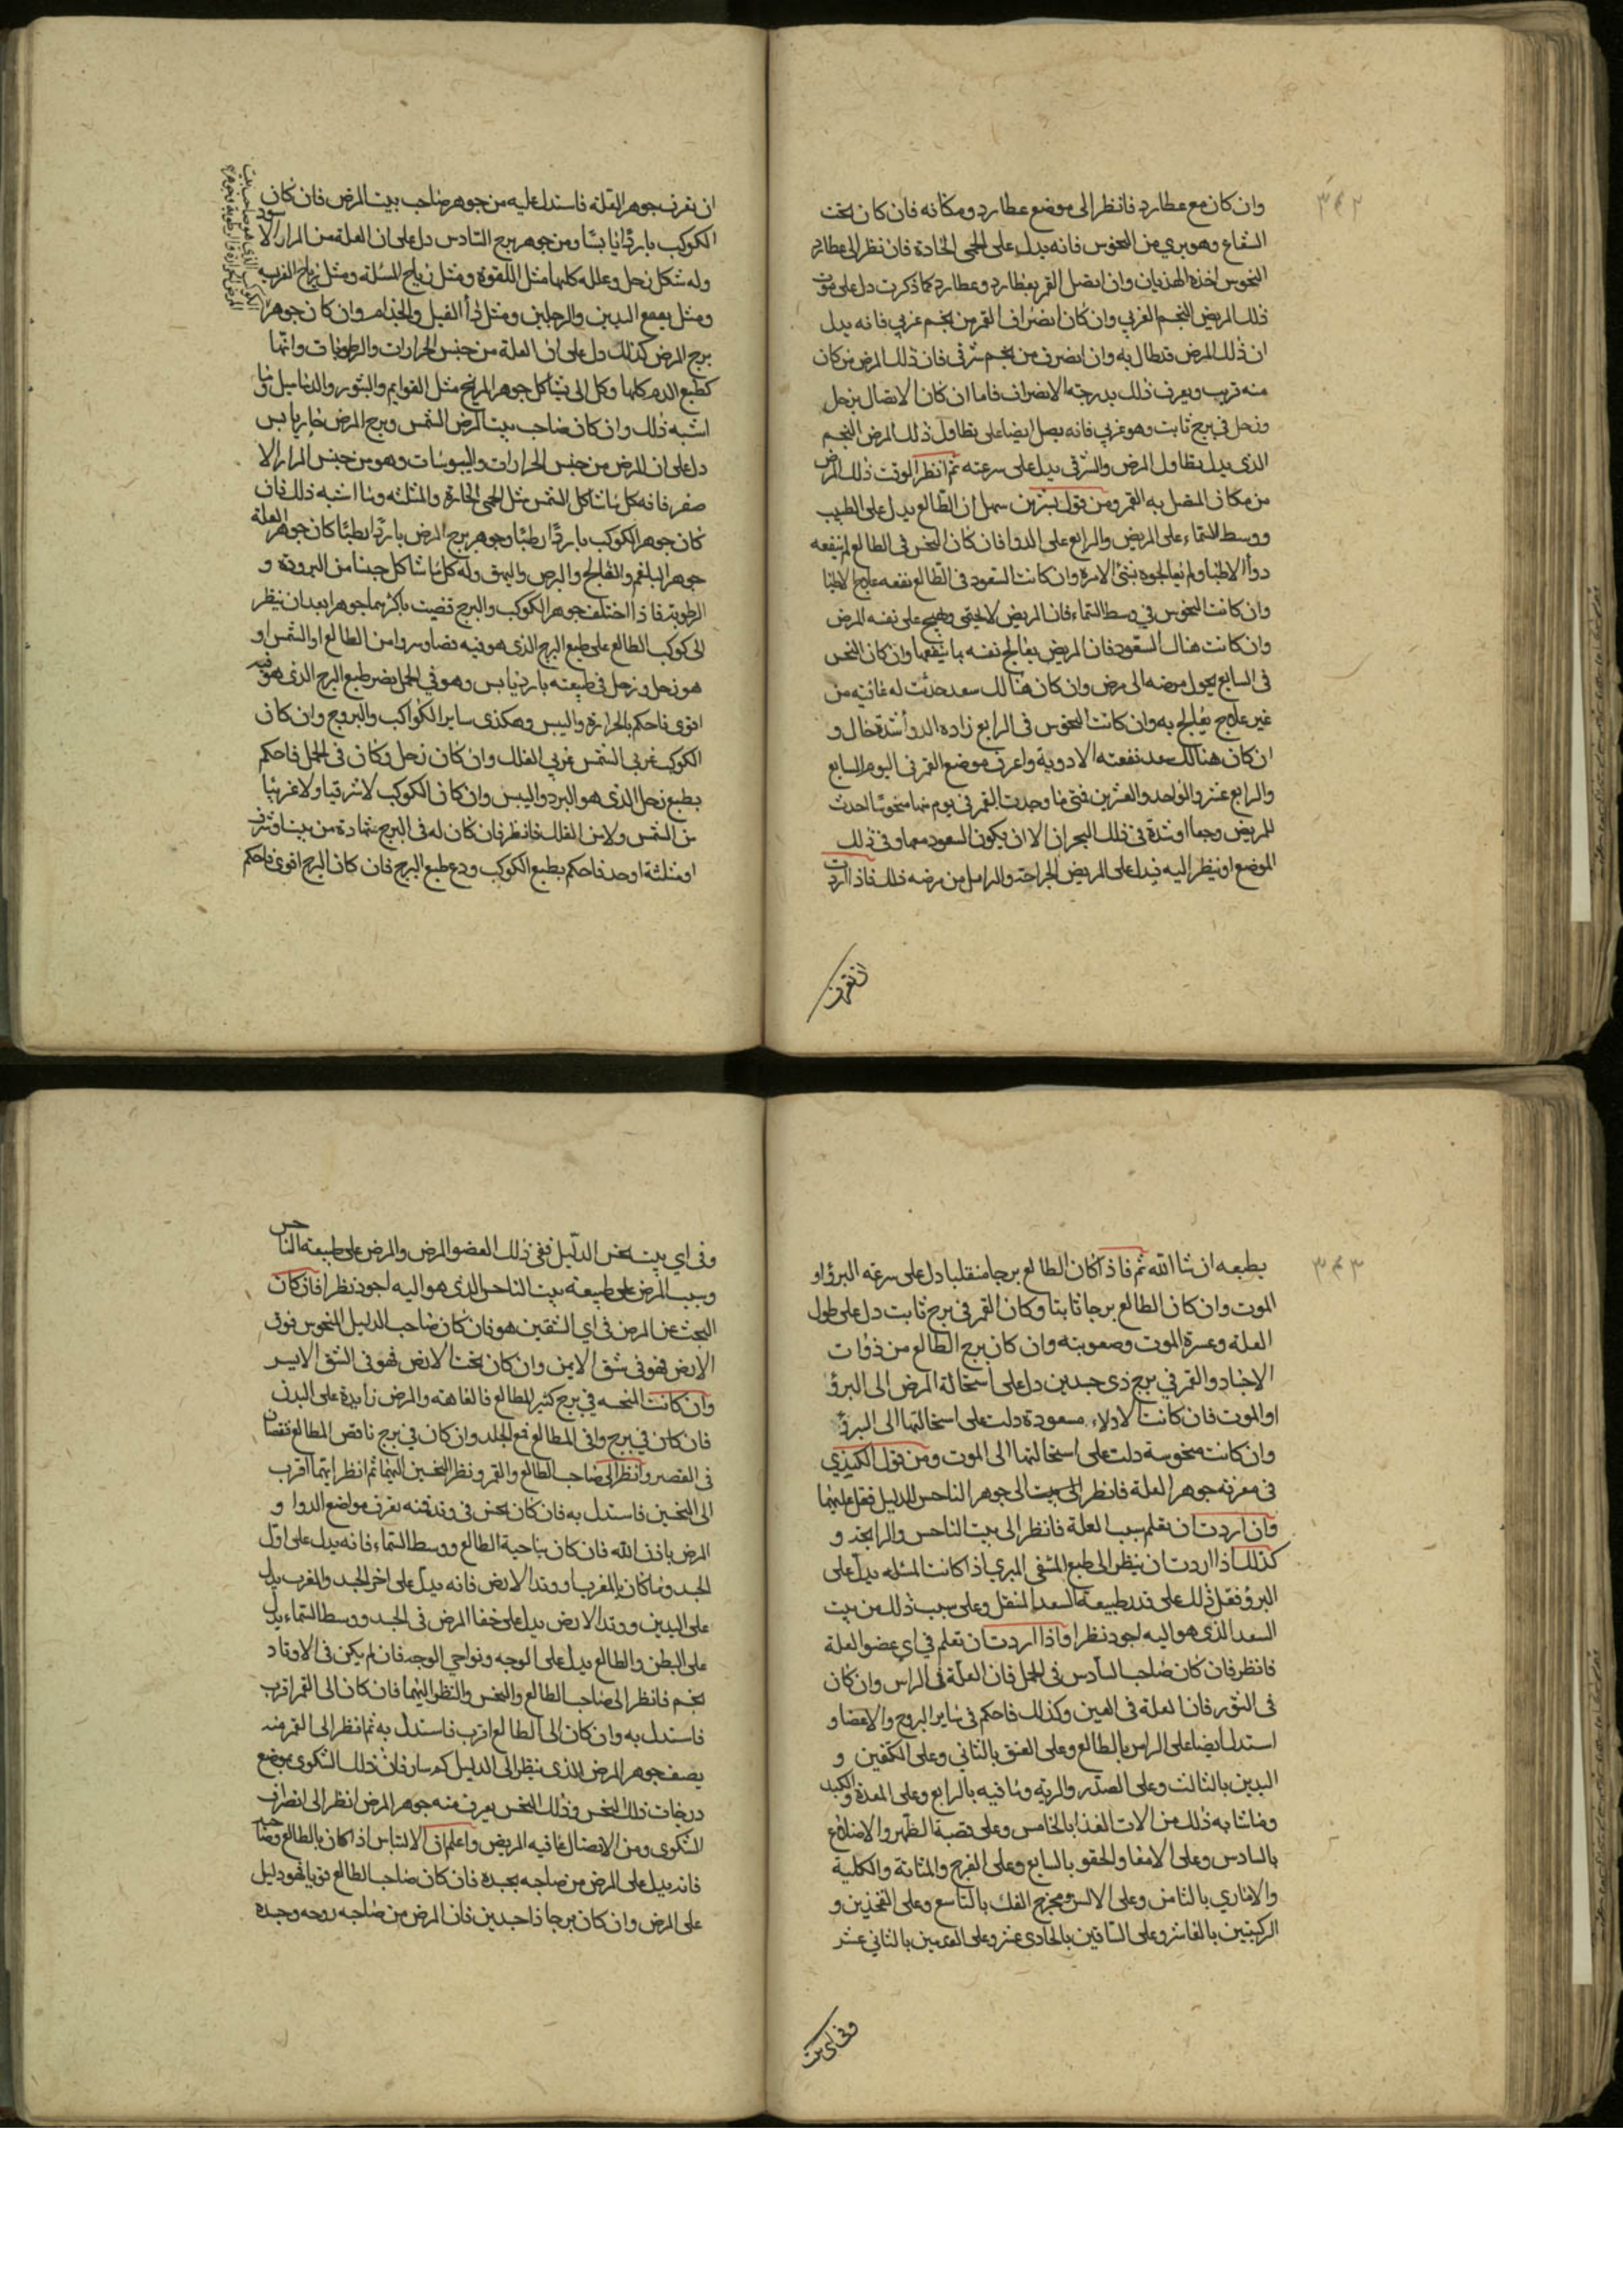 ٣٤٢
وان كان مع عطارد فانظر الى موضع عطارد ومكانه فان كان تحت
الشعاع وهو بري من النحوس فانه يدل على الحمى الحادة فان نظر الى عطارد
النحوس اخذه الهذيان وان اتصل القمر بعطارد وعطارد كما ذكرت دل على موت
ذلك المريض النجم الغربي وان كان انصراف القمر من نجم غربي فانه يدل
ان ذلك المرض قد طال به وان انصرف من نجم شرقي فان ذلك المرض من كان
منه قريب ويعرف ذلك بدرجة الانصراف فاما ان كان الاتصال بزحل
وزحل في برج ثابت وهو غربي فانه يصل ايضا على تطاول ذلك المرض النجم
الذي يدل بتطاول المرض والشرقي يدل على سرعته ثم انظر الوقت ذلك المرض
من مكان المتصل به القمر ومن قول سهل ان الطالع يدل على الطبيب
ووسط السماء على المريض والرابع على الدوا فان كان النحس في الطالع لم ينفعه
دوا الاطبا ولم يعالجوه بشئ الامرة وان كانت السعود في الطالع نفعه علاج الاطبا
وان كانت النحوس في وسط السماء فان المريض لا يحتمي ويهيج على نفسه المرض
وان كانت هناك السعود فان المريض يعالج نفسه بما ينفعها وان كان النحس
في السابع يحول مرضه الى مرض وان كان هنالك سعد حدثت له عافية من
غير علاج يعالج به وان كانت النحوس في الرابع زاده الدوا شدة حال و
ان كان هنالك سعد نفعته الادوية واعرف موضع القمر في اليوم السابع
والرابع عشر والواحد والعشرين فمتى ما وجدت القمر في يوم منها منحوسا احدث
للمريض وجعا او شدة في ذلك البحران الا ان يكون السعود معها وفي ذلك
الموضع او ينظر اليه فيدل على المريض الجراحة والدمامل من مرضه ذلك فاذا اردت
ان تعرف
ان تعرف جوهر العلة فاستدل عليه من جوهر صاحب بيت المرض فان كان
الكوكب باردا يابسا ومن جوهر برج السادس دل على ان العلة من المرار الاسود
وله شكل زحل وعلله كلها مثل اللقوة ومثل رياح السلة ومثل رياح
ومثل اليدين والرجلين ومثل دأ الفيل والجذام وان كان جوهر
برج المرض كذلك دل على ان العلة من جنس الحرارات والرطوبات وانها
كطبع الدم كلها وكل الى شاكل جوهر المريخ مثل والبثور والدماميل وما
اشبه ذلك وان كان صاحب بيت المرض الشمس وبرج المرض حار يابس
دل على ان المرض من جنس الحرارات واليبوسات وهو من جنس المرار الا
صفر فانه كل ما شاكل الشمس مثل الحمى الحارة والمثلثة وما اشبه ذلك فان
كان جوهر الكوكب باردا رطبا وجوهر برج المرض باردا رطبا كان جوهر العلة
جوهر البلغم والفالج والبرص والبهق وله كل ما شاكل جنسا من البرودة و
الرطوبة فاذا اختلف جوهر الكوكب والبرج قضيت باكثرهما جوهرا بعد ان ينظر
الى كوكب الطالع على طبع البرج الذي هو فيه من الطالع او الشمس او
هو زحل وزحل في طبيعته بارد يابس وهو في الحمل يضر طبع البرج الذي هو فيه
اقوى فاحكم بالحرارة واليبس وهكذى ساير الكواكب والبروج وان كان
الكوكب غربي الشمس غربي الفلك وان كان زحل وكان في الحمل فاحكم
بطبع زحل الذي هو البرد واليبس وان كان الكوكب لا شرقيا ولا غربيا
من الشمس ولا من الفلك فانظر فان كان له في البرج شهادة من بيت او شرف
او مثلثة او حد فاحكم بطبع الكوكب ودع طبع البرج فان كان البرج اقوى فاحكم
٣٤٣
بطبعه ان شا الله ثم فاذا كان الطالع برجا منقلبا دل على سرعة البرؤ او
الموت وان كان الطالع برجا ثابتا وكان القمر في برج ثابت دل على طول
العلة وعسرة الموت وصعوبته وان كان برج الطالع من ذوات
الاجساد والقمر في برج ذي جسدين دل على استحالة المرض الى البرؤ
او الموت فان كانت الادلاء مسعودة دلت على استحالتها الى البرؤ
وان كانت منحوسة دلت على استحالتها الى الموت ومن قول الكندي
في معرفة جوهر العلة فانظر الى بيت الى جوهر الناحس للدليل فقل عليهما
وان اردت ان تعلم سبب العلة فانظر الى بيت الناحس و
كذلك اذا اردت ان ينظر الى طبع المشفي المبري اذا كانت المسئلة يدل على
البرؤ فقل ذلك على قدر طبيعة السعد المتصل وعلى سبب ذلك من بيت
السعد الذي هو اليه اجود نظرا واذا اردت ان تعلم في اي عضو العلة
فانظر فان كان صاحب السادس في الحمل فان العلة في الراس وان كان
في الثور فان العلة في العين وكذلك فاحكم في ساير البروج والاعضا و
استدل ايضا على الراس بالطالع وعلى العنق بالثاني وعلى الكتفين و
اليدين بالثالث وعلى الصدر والرية وما فيه بالرابع وعلى المعدة والكبد
وما شابه ذلك من الات الغذا بالخامس وعلى قصبة الظهر والاضلاع
بالسادس وعلى الامعا والحقو بالسابع وعلى الفرج والمثانة والكلية
بالثامن وعلى بالتاسع وعلى الفخذين و
الركبتين بالعاشر وعلى الساقين بالحادى عشر وعلى القدمين بالثاني عشر
وفي اي بيت
وفي اي بيت نحس الدليل ففي ذلك العضو المرض والمرض على طبيعة الناحس
وسبب المرض على طبيعة بيت الناحس الذي هو اليه اجود نظرا فان كان
البحث عن المرض في اي الشقين هو فان كان صاحب الدليل المنحوس فوق
الارض فهو في شق الايمن وان كان تحت الارض فهو في الشق الايسر
وان كانت المنحسه في برج كثير المطالع فالعاهة والمرض زايدة على البدن
فان كان في برج وافي المطالع فمع الجلد وان كان في برج ناقص المطالع نقصان
في العضو وانظر الى صاحب الطالع والقمر ونظر النحسين اليهما ثم انظر ايهما اقرب
الى النحسين فاستدل به فان كان نحس في وتد فمنه تعرف مواضع الدوا و
المرض باذن الله فان كان بناحية الطالع ووسط السماء فانه يدل على اول
الجسد وما كان بالمغرب او وتد الارض فانه يدل على اخر الجسد والمغرب يدل
على اليدين ووتد الارض يدل على خفا المرض في الجسد ووسط السماء يدل
على البطن والطالع يدل على الوجه ونواحي الوجه فان لم يكن في الاوتاد
نجم فانظر الى صاحب الطالع والنحس والنظر اليهما فان كان الى القمر اقرب
فاستدل به وان كان الى الطالع اقرب فاستدل به ثم انظر الى القمر منه
يصف جوهر المرض الذي ينظر الى الدليل كم سار فان ذلك الشكوى بموضع
درجات ذلك النحس وذلك النحس يعرف منه جوهر المرض انظر الى انصراف
الشكوى ومن الاتصال عافية المريض واعلم ان الالتباس اذا كان بالطالع وصاحبه
فانه يدل على المرض من صاحبه بجسده فان كان صاحب الطالع قويا فهو دليل
على المرض وان كان برجا ذا جسدين فان المرض من صاحبه روحه وجسده